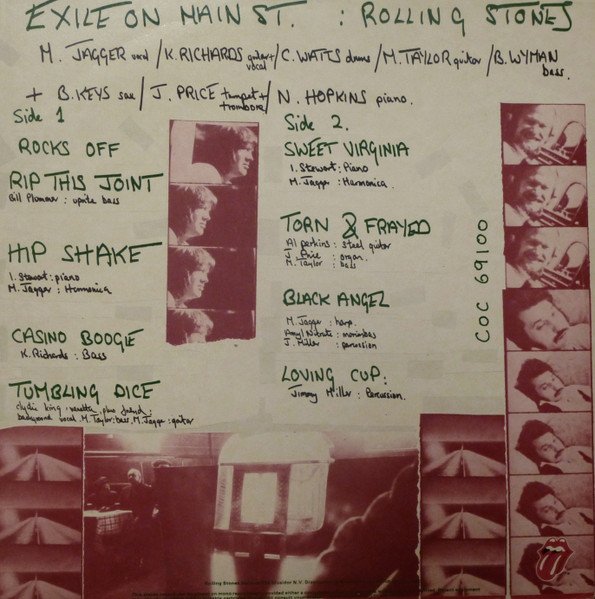 EXILE ON MAIN ST. : ROLLING STONES
M. JAGGER vocal / K. RICHARDS guitar + vocal / C. WATTS drums / M. TAYLOR guitar / B. WYMAN bass.
+ B. KEYS sax / J. PRICE trumpet + trombone / N. HOPKINS piano.
Side 1
ROCKS OFF
RIP THIS JOINT
Bill Plummer : uprite bass
HIP SHAKE
I. Stewart : piano
M. Jagger : Harmonica
CASINO BOOGIE
K. Richards : Bass
TUMBLING DICE
clydie king, vanetta, plus friend.
background vocal. M. Taylor: bass, M. Jagger: guitar
Side 2.
SWEET VIRGINIA
I. Stewart : Piano
M. Jagger : Harmonica.
TORN & FRAYED
Al perkins : steel guitar
J. Price : organ.
M. Taylor : bass
BLACK ANGEL
M. Jagger : harp.
Amyl Nitrate : marimbas
J. Miller : percussion
LOVING CUP:
Jimmy Miller : Percussion.
COC 69100